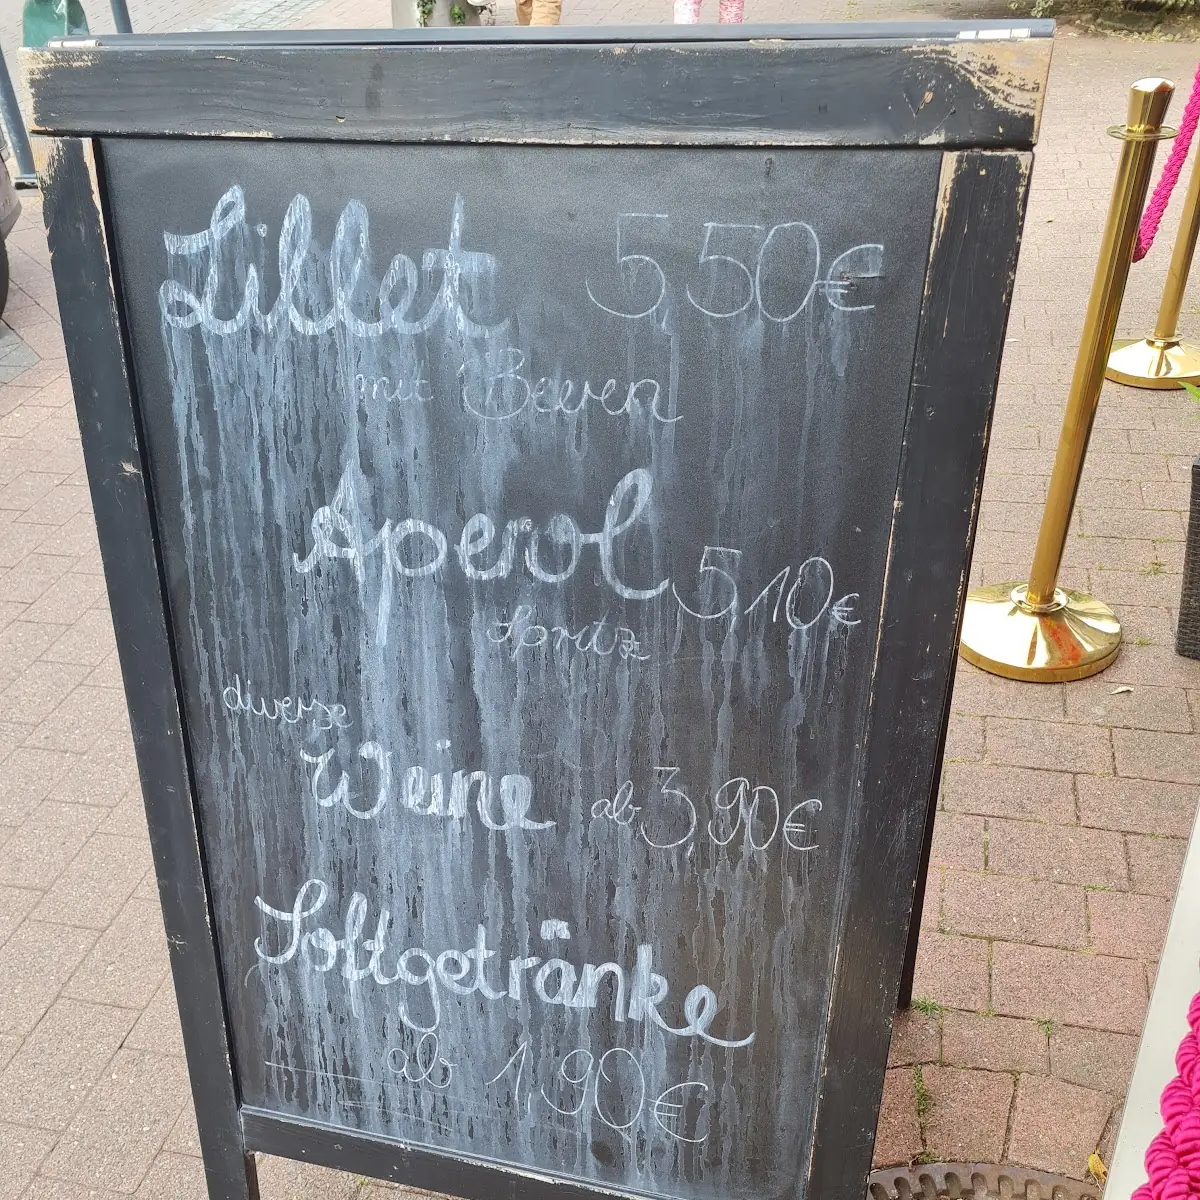 Lillet 5,50€
mit Beeren
Aperol 5,10€
Spritz
diverse
Weine ab 3,90€
Softgetränke
ab 1,90€